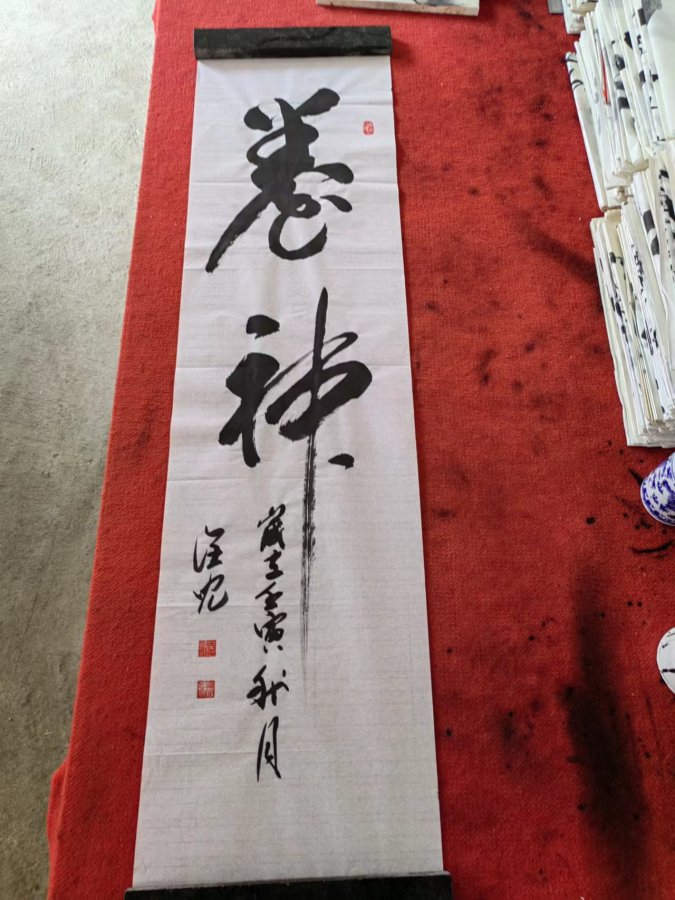 養神
歲在壬寅秋月